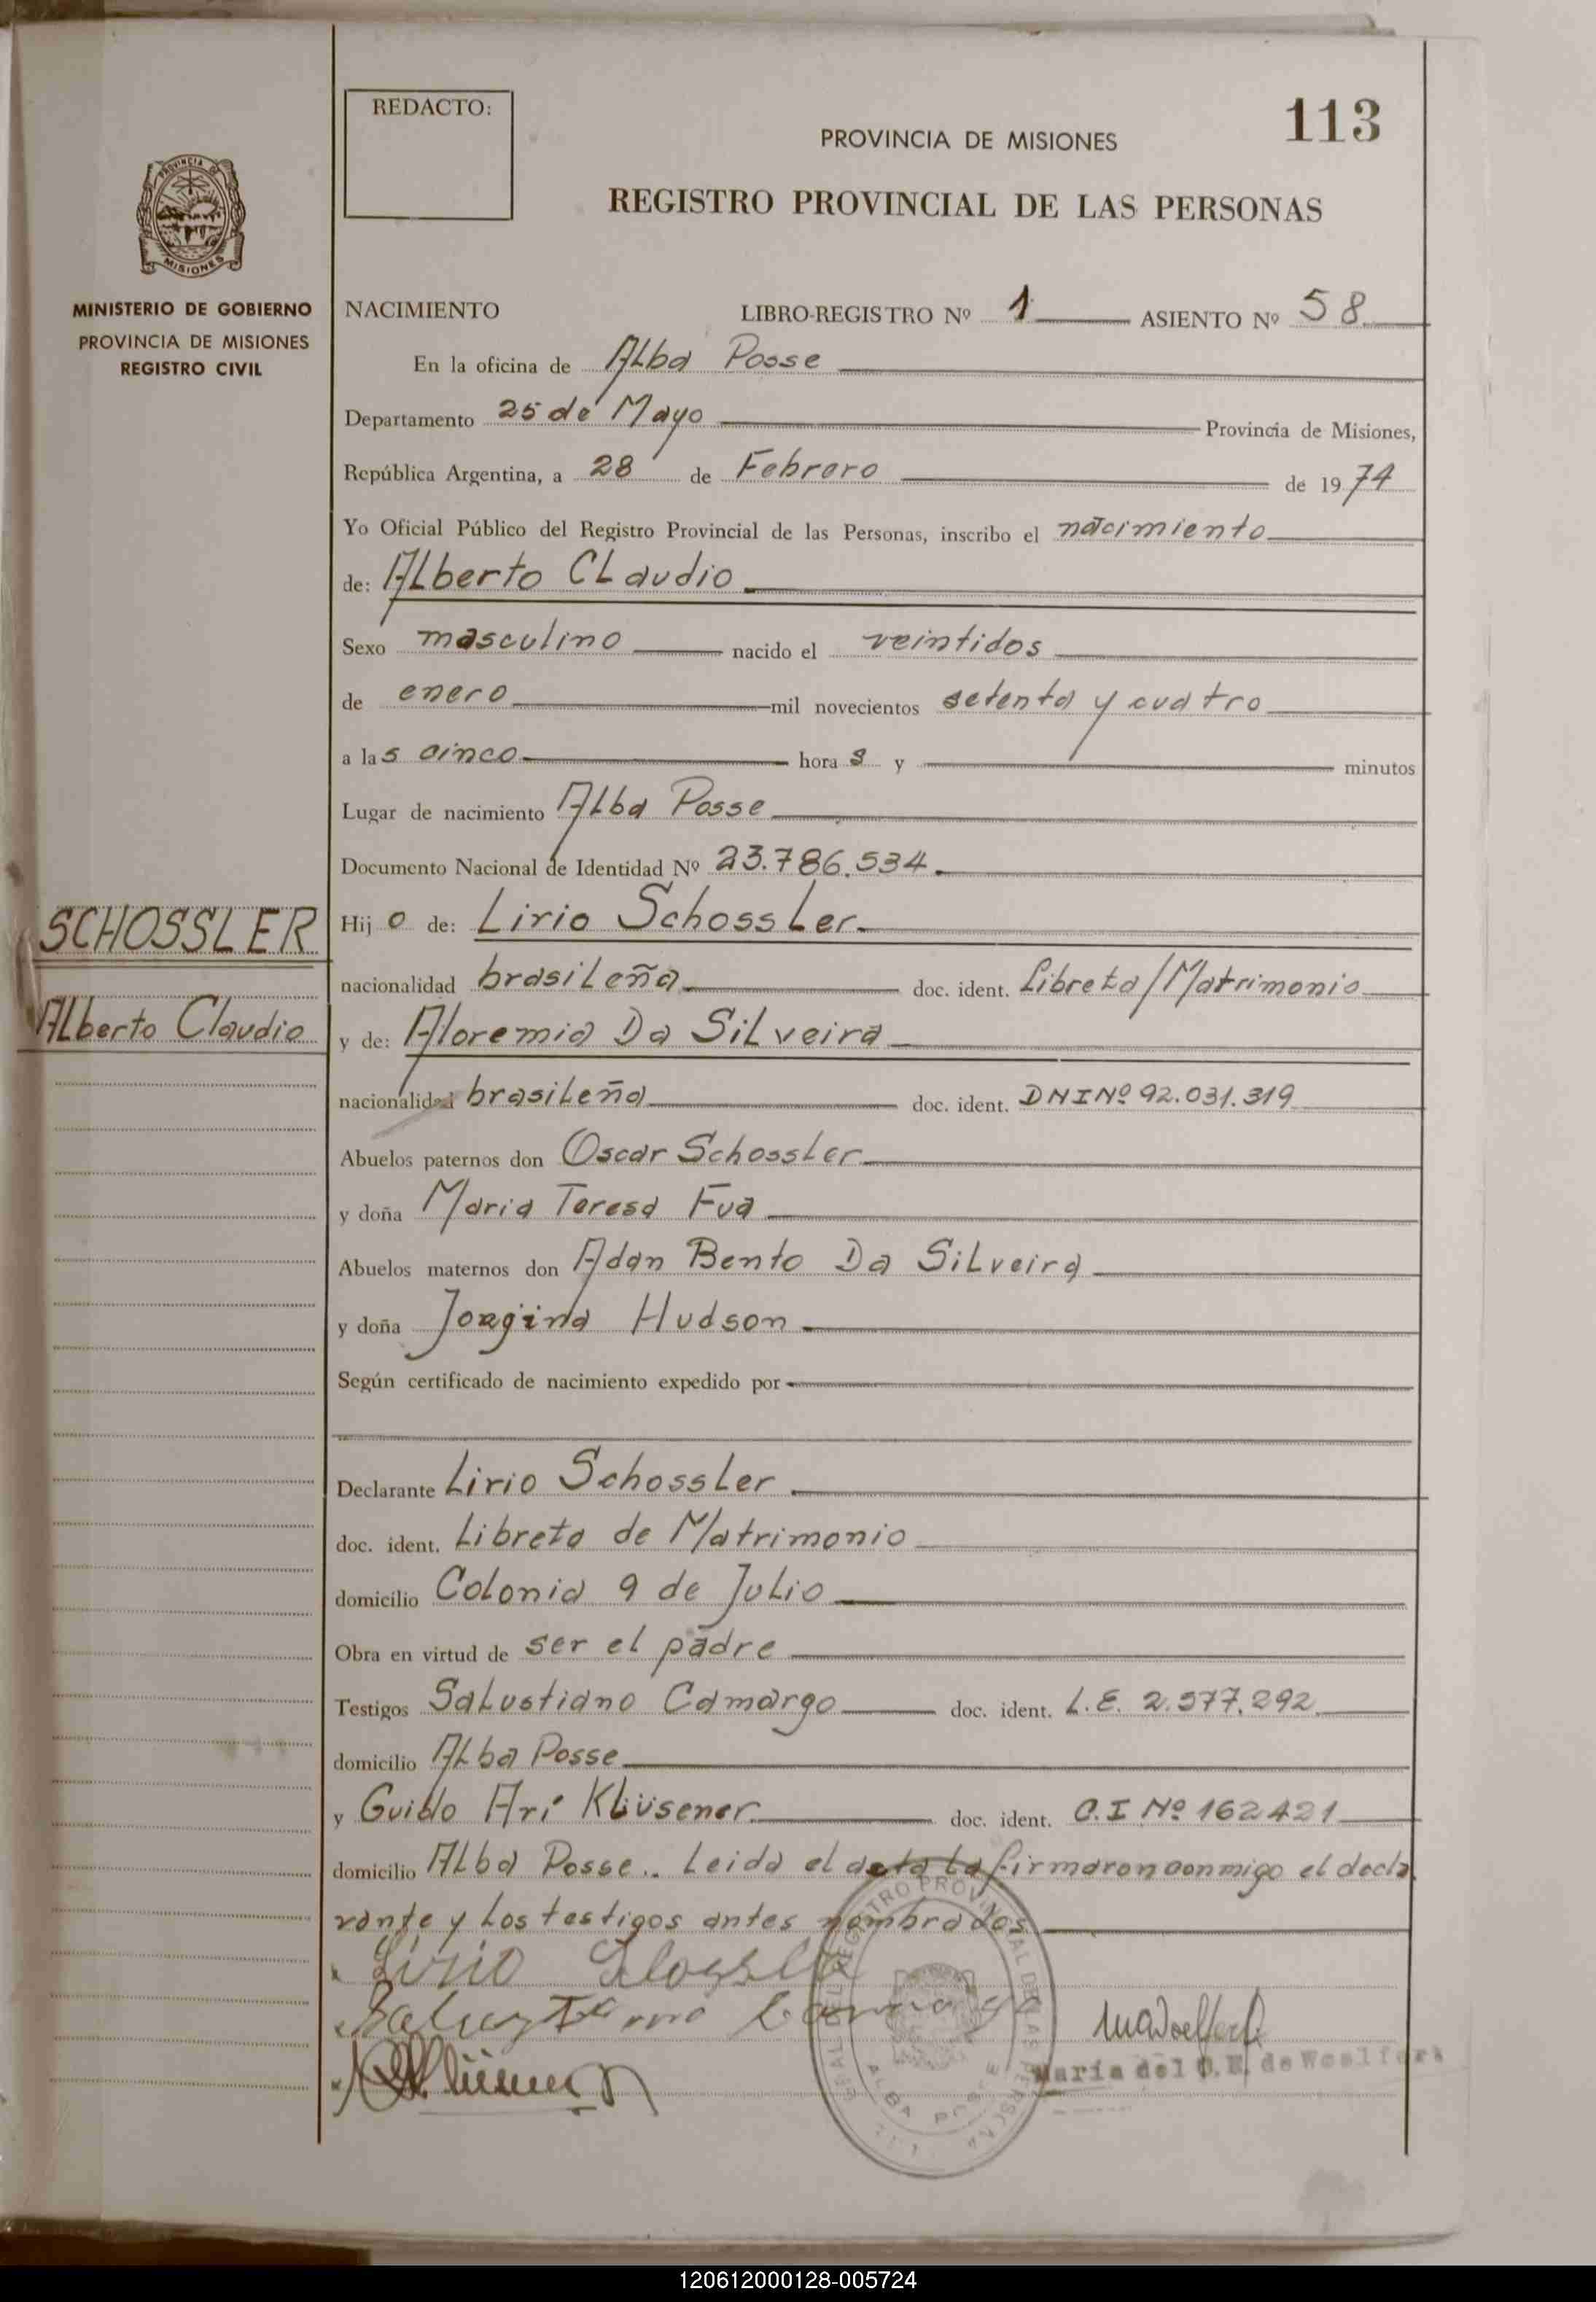 REDACTO:
113
PROVINCIA DE MISIONES
REGISTRO PROVINCIAL DE LAS PERSONAS
PROVINCIA DE
MISIONES
MINISTERIO DE GOBIERNO
PROVINCIA DE MISIONES
REGISTRO CIVIL
NACIMIENTO LIBRO-REGISTRO Nº 1 ASIENTO Nº 58
En la oficina de Alba Posse
Departamento 25 de Mayo Provincia de Misiones,
República Argentina, a 28 de Febrero de 1974
Yo Oficial Público del Registro Provincial de las Personas, inscribo el nacimiento
de: Alberto Claudio
Sexo masculino nacido el veintidos
de enero mil novecientos setenta y cuatro
a las cinco horas y minutos
Lugar de nacimiento Alba Posse
Documento Nacional de Identidad Nº 23.786.534.
SCHOSSLER
Alberto Claudio
Hijo de: Lirio Schossler.
nacionalidad brasileña doc. ident. Libreta/Matrimonio
y de: Aloremia Da Silveira
nacionalidad brasileña doc. ident. DNI Nº 92.031.319
Abuelos paternos don Oscar Schossler
y doña Maria Teresa Fua
Abuelos maternos don Adan Bento Da Silveira
y doña Jorgina Hudson
Según certificado de nacimiento expedido por
Declarante Lirio Schossler
doc. ident. Libreta de Matrimonio
domicilio Colonia 9 de Julio
Obra en virtud de ser el padre
Testigos Salustiano Camargo doc. ident. L.E. 2.577.292
domicilio Alba Posse
y Guido Arí Klüsener doc. ident. C.I Nº 162421
domicilio Alba Posse.. Leida el acta la firmaron conmigo el decla
rante y los testigos antes nombrados
Lirio Schossler
Salustiano Camargo
Maria del de Woelfert
ALBA POSSE
120612000128-005724